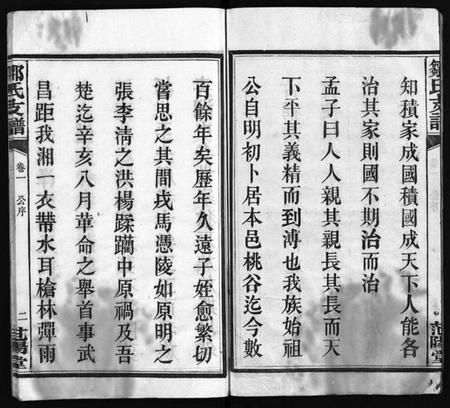 鄒氏支譜
知積家成國積國成天下人能各
治其家則國不期治而治
孟子曰人人親其親長其長而天
下平其義精而到溥也我族始祖
公自明初卜居本邑桃谷迄今數
范陽堂
百餘年矣歷年久遠子姪愈繁切
嘗思之其間戎馬憑陵如原明之
張李淸之洪楊蹂躪中原禍及吾
楚迄辛亥八月革命之舉首事武
昌距我湘一衣帶水耳槍林彈雨
鄒氏支譜
卷一
公序
二
范陽堂